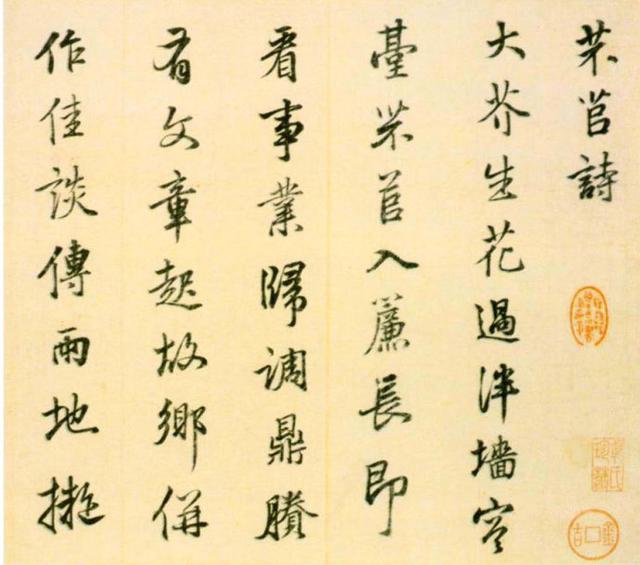 芣苢詩
大芥生花過泮墻
臺芣苢入簾長即
看事業歸調鼎賸
有文章起故鄉併
作佳談傳兩地擬